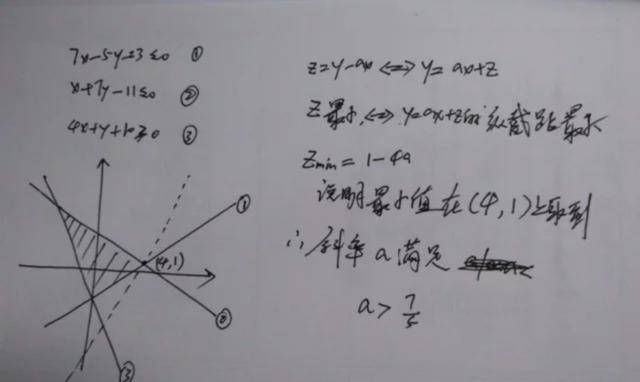 7x-5y-23≤0 ①
x+7y-11≤0 ②
4x+y+10≥0 ③
z=y-ax⟺y=ax+z
z最小⟺y=ax+z的纵截距最小
Zmin=1-4a
说明最小值在(4,1)上取到
∴斜率a满足
a>7/5
①
(4,1)
②
③